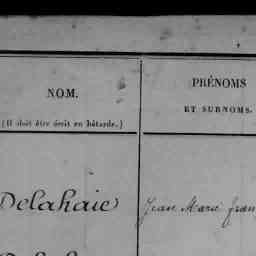 NOM.
(Il doit être écrit en bâtarde.)
PRÉNOMS
ET SURNOMS.
Delahaie
Jean Marie fran